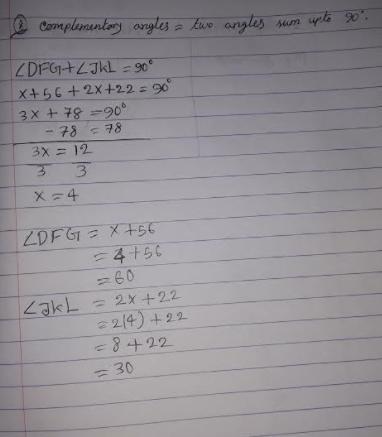 ② complementary angles = two angles sum upto 90°.
∠DFG+∠JKL = 90°
x+56+2x+22 = 90°
3x + 78 = 90°
- 78 = 78
3x = 12
3 3
x = 4
∠DFG = x+56
= 4+56
= 60
∠JKL = 2x+22
= 2(4)+22
= 8+22
= 30